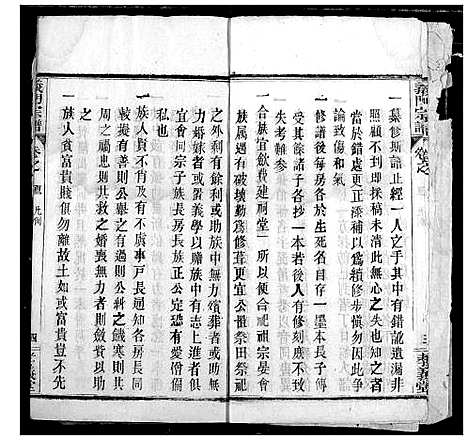 義門宗譜
一纂修斯譜止經一人之手其中有錯認遺漏非
照顧不到即採稿未清此無心之失也知之
當於錯處更正漆補以爲續修步愼勿因此爭
論致傷和氣
一修譜後每房各於生死名目存一墨本長子傳
與其餘諸子各抄一本若後人有修刻庶不致
失考難參
一合族宜飲貲建祠堂一所以便合祀祖宗晏會
族屬遇有毀壞動務修葺更宜公積祭田祭祀
之外利有餘利或助族中無力殯葬者或助無
力婚娶者或營義學以贍族中有志上進者俱
宜會同宗子族長房長族正公定恐立僧佐營
私也
一族人貧不肖及有不虞事戶長通知各房長同
擬善則共與之有過則公糾之饑寒則共
周之禍患則共救之婚喪無力者則斂貲以助
之
一族人貧富貴賤俱勿離故土如或富貴豈不先
義門宗譜
卷之
凡例
四
義門堂